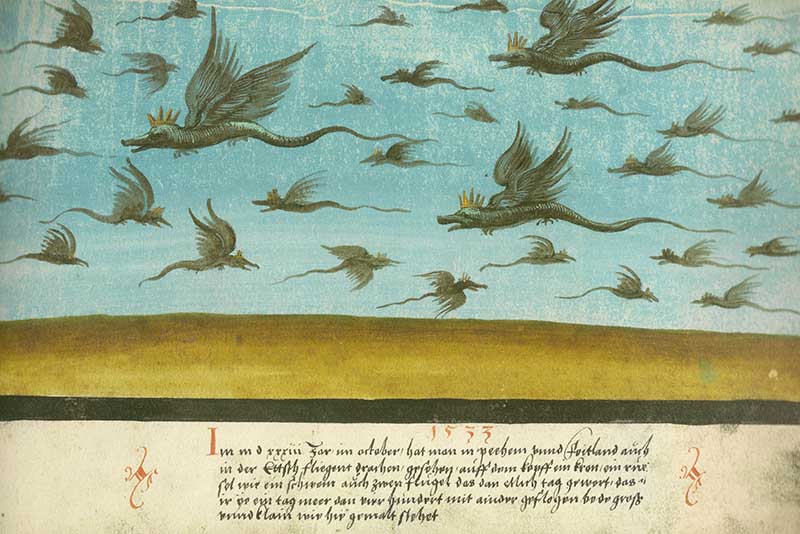 1533
Im m d xxxiii Jar im october / hat man in pechem vnnd foitland auch
in der Ettsch fliegent drachen gesehen / auff dem kopff ein kron / ein rüe
sel wie ein schwein auch zwen flügel das dan etlich tag gewert / das
ir ein tag meer dan vier hundert mit ainder geflogen bede gross
vnnd klain wie hie gemalt stehet